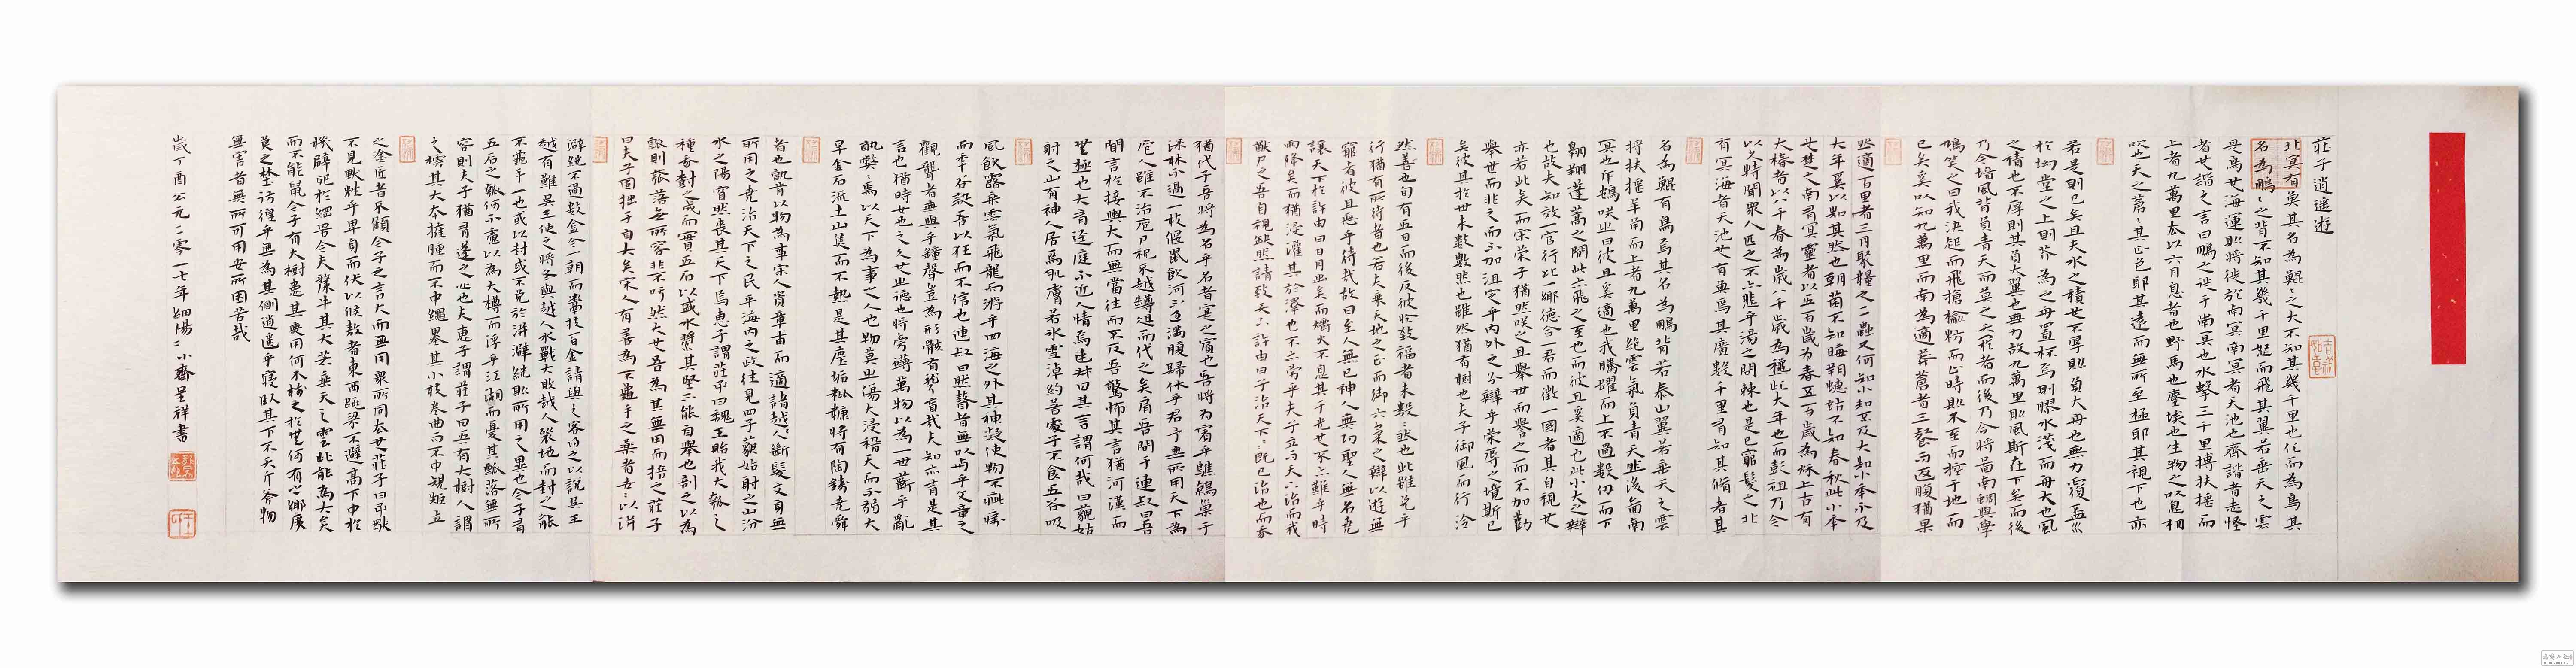 莊子逍遙遊
北冥有魚其名為鯤〻之大不知其幾千里也化而為鳥其
名為鵬〻之背不知其幾千里怒而飛其翼若垂天之雲
是鳥也海運則將徙於南冥南冥者天池也齊諧者志怪
者也諧之言曰鵬之徙于南冥也水擊三千里摶扶搖而
上者九萬里去以六月息者也野馬也塵埃也生物之以息相
吹也天之蒼〻其正色耶其遠而無所至極耶其視下也亦
若是則已矣且夫水之積也不厚則負大舟也無力覆盃水
於坳堂之上則芥為之舟置杯焉則膠水淺而舟大也風
之積也不厚則其負大翼也無力故九萬里則風斯在下矣而後
乃今培風背負青天而莫之夭閼者而後乃今將圖南蜩與學
鳩笑之曰我決起而飛搶榆枋而止時則不至而控于地而
已矣奚以知九萬里而南為適莽蒼者三餐而返腹猶果
然適百里者三月聚糧之二蟲又何知小知不及大知小年不及
大年奚以知其然也朝菌不知晦朔蟪蛄不知春秋此小年
也楚之南有冥靈者以五百歲為春五百歲為秋上古有
大椿者以八千春為歲八千歲為穐此大年也而彭祖乃今
以久特聞眾人匹之不亦悲乎湯之問棘也是已窮髮之北
有冥海者天池也有魚焉其廣數千里有知其脩者其
名為鯤有鳥焉其名為鵬背若泰山翼若垂天之雲
將扶搖羊角而上者九萬里絕雲氣負青天然後啚南
冥也斥鴳笑之曰彼且奚適也我騰躍而上不過數仞而下
翱翔蓬蒿之間此亦飛之至也而彼且奚適也此小大之辯
也故夫知效一官行比一鄉德合一君而徵一國者其自視也
亦若此矣而宋榮子猶然笑之且舉世而譽之而不加勸
舉世而非之而不加沮定乎內外之分辯乎榮辱之境斯已
矣彼其於世未數數然也雖然猶有樹也夫子御風而行泠
然善也旬有五日而後反彼於致福者未數〻然也此雖免乎
行猶有所待者也若夫乘天地之正而御六氣之辯以遊無
窮者彼且惡乎待哉故曰至人無已神人無功聖人無名堯
讓天下於許由曰日月出矣而爝火不息其于光也不亦難乎時
雨降矣而猶浸灌其於澤也不亦勞乎夫子立而天下治而我
猷尸之吾自視缺然請致天下許由曰子治天下〻既已治也而吾
猶代子吾將為名乎名者實之賓也吾將為賓乎鷦鷯巢于
深林不過一枝偃鼠飲河不過滿腹歸休乎君予無所用天下為
庖人雖不治庖尸祝不越罇俎而代之矣肩吾問于連叔曰吾
聞言於接輿大而無當往而不反吾驚怖其言猶河漢而
無極也大有逕庭不近人情焉連叔曰其言謂何哉曰藐姑
射之山有神人居焉肌膚若冰雪淖約若處子不食五谷吸
風飲露乘雲氣飛龍而游乎四海之外其神凝使物不疵癘
而年谷熟吾以狂而不信也連叔曰然瞽者無以与乎文章之
觀聾者無與乎鐘聲豈為形骸有聾盲哉夫知亦有是其
言也猶時女也之人也之德也將旁礴萬物以為一世蘄乎亂
孰弊〻焉以天下為事之人也物莫之傷大浸稽天而不溺大
旱金石流土山焦而不熱是其塵垢粃糠將有陶鑄堯舜
者也孰肯以物為事宋人資章甫而適諸越〻人斷髮文身無
所用之堯治天下之民平海內之政往見四子藐姑射之山汾
水之陽窅然喪其天下焉惠子謂莊子曰魏王貽我大瓠之
種我樹之成而實五石以盛水漿其堅不能自舉也剖之以為
瓢則瓠落無所容非不呺然大也吾為其無用而掊之莊子
曰夫子固拙于用大矣宋人有善為不龜手之藥者世〻以洴
澼絖不過數金今一朝而鬻技百金請與之客得之以說吳王
越有難吳王使之將冬與越人水戰大敗越人裂地而封之能
不龜手一也或以封或不免於洴澼絖則所用之異也今子有
五石之瓠何不慮以為大樽而浮乎江湖而憂其瓠落無所
容則夫子猶有蓬之心也夫惠子謂莊子曰吾有大樹人謂
之樗其大本擁腫而不中繩墨其小枝卷曲而不中規矩立
之塗匠者不顧今子之言大而無用眾所同去也莊子曰子獨
不見狸狌乎卑身而伏以候敖者東西跳梁不避高下中於
機辟死於罔罟今夫斄牛其大若垂天之雲此能為大矣
而不能鼠今子有大樹患其無用何不樹之於無何有之鄉廣
莫之埜彷徨乎無為其側逍遙乎寢臥其下不夭斤斧物
無害者無所可用安所困苦哉
歲丁酉公元二零一七年細陽二小齋呈祥書